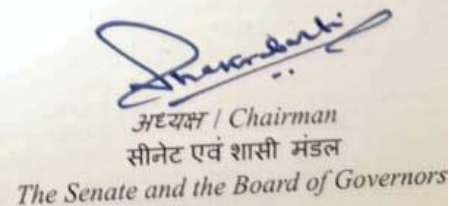 अध्यक्ष / Chairman
सीनेट एवं शासी मंडल
The Senate and the Board of Governors